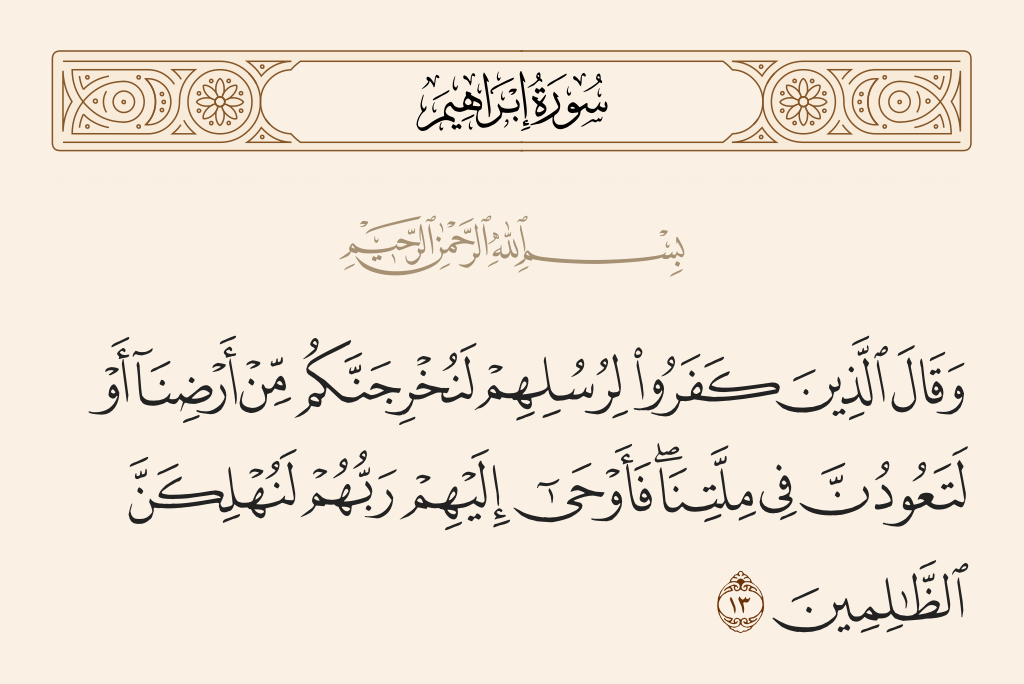 سُورَةُ إِبْرَاهِيمَ
بِسْمِ ٱللَّهِ ٱلرَّحْمَٰنِ ٱلرَّحِيمِ
وَقَالَ ٱلَّذِينَ كَفَرُوا۟ لِرُسُلِهِمْ لَنُخْرِجَنَّكُم مِّنْ أَرْضِنَآ أَوْ
لَتَعُودُنَّ فِى مِلَّتِنَا ۖ فَأَوْحَىٰٓ إِلَيْهِمْ رَبُّهُمْ لَنُهْلِكَنَّ
ٱلظَّـٰلِمِينَ ١٣